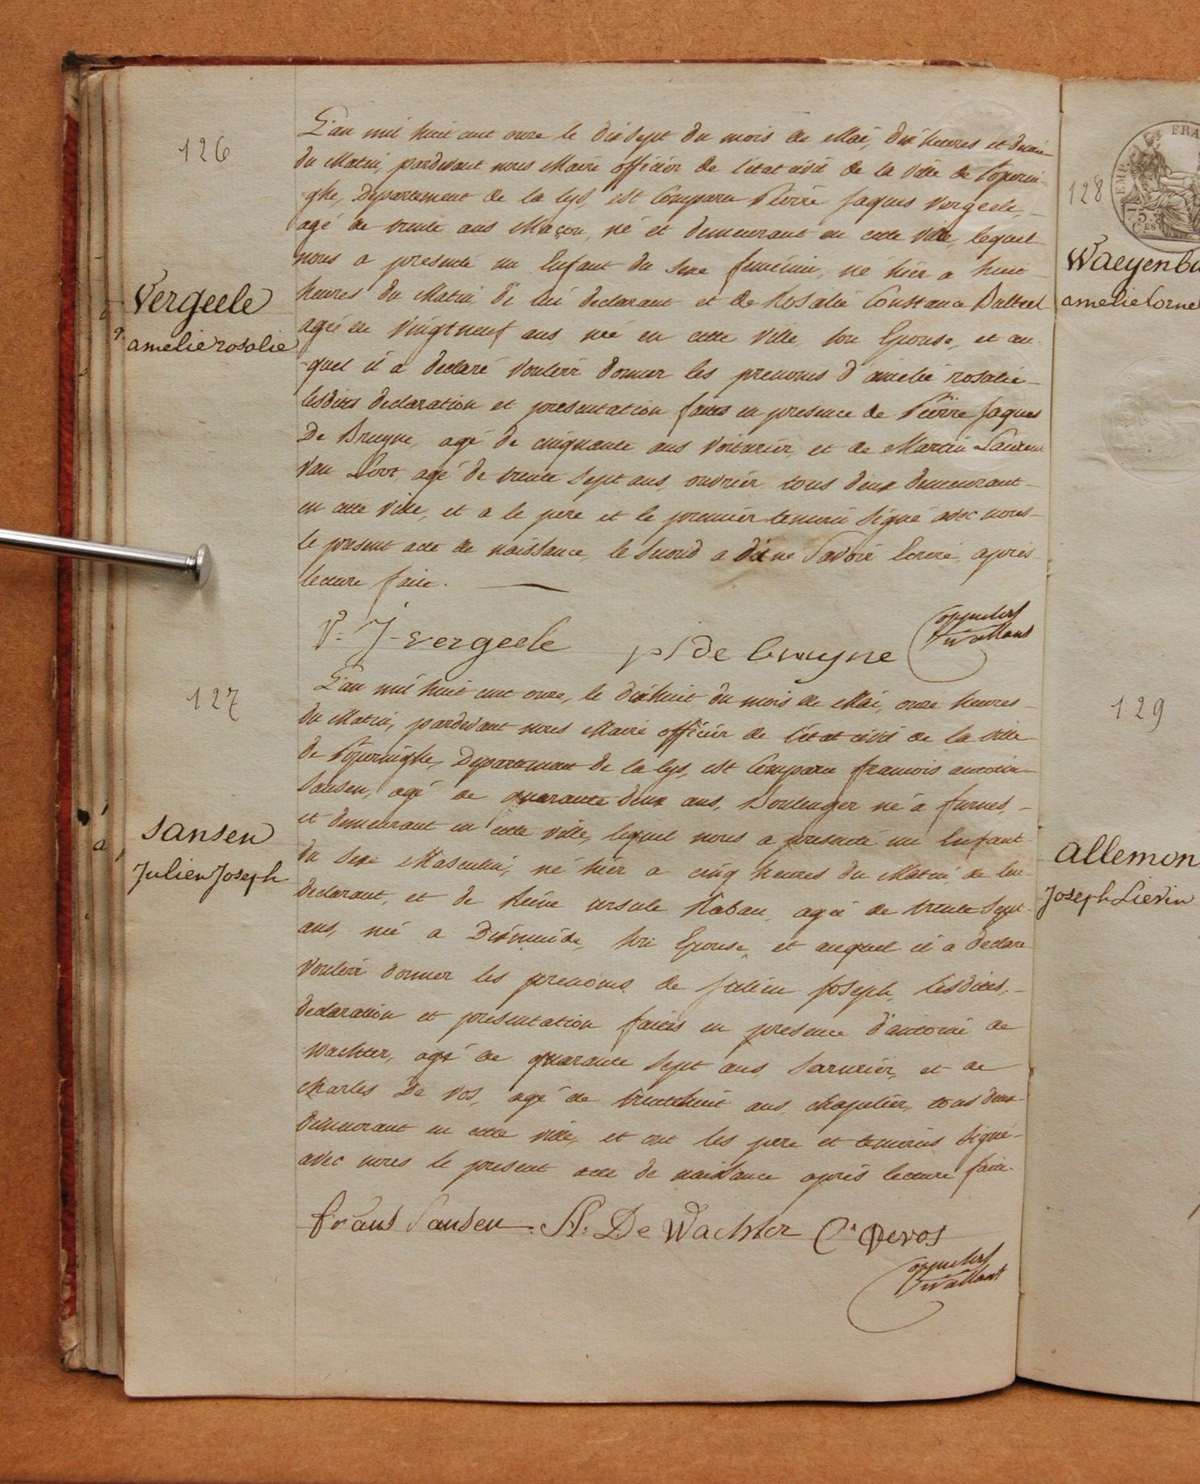 126
L'an mil huit cent onze le dix sept du mois de Mai, dix heures et demie
du Matin, pardevant nous Maire officier de l'état civil de la ville de Poperin-
-ghe, Departement de la Lys, est Comparu Pierre Jaques Vergeele,
agé de trente ans Maçon, né et demeurant en cette Ville, lequel
nous a presenté un Enfant du Sexe feminin, né hier a huit
heures du Matin de lui declarant et de Rosalie Constance
agée de Vingt neuf ans née en cette Ville, son Epouse, et au-
-quel il a declaré Vouloir donner les prenoms d'amelie rosalie
lesdites declaration et presentation faites en presence de Pierre Jaques
De Bruyne, agé de cinquante ans Voiturier, et de Martin Laurent
Van agé de trente sept ans, ouvrier tous deux demeurant
en cette Ville, et a le pere et le premier temoin Signé avec nous
le present acte de naissance, le Second a dit ne Savoir Ecrire, après
lecture faite.
Vergeele
amelie rosalie
P. J. vergeele
p J de bruyne
127
L'an mil huit cent onze, le dix huit du mois de Mai, onze heures
du Matin, pardevant nous Maire officier de l'état civil de la ville
de Poperinghe, Departement de la Lys, est Comparu francois antoine
Sansen, agé de quarante deux ans, Boulenger né a furnes,
et demeurant en cette ville, lequel nous a presenté un Enfant
du Sexe Masculin, né hier a cinq heures du Matin, de lui
declarant, et de Reine ursule Rabau, agée de trente Sept
ans, née a Dixmude, Son Epouse, et auquel il a declaré
Vouloir donner les prenoms de Julien Joseph, lesdites
declaration et presentation faites en presence d'antoine de
Wachter, agé de quarante Sept ans Serrurier, et de
Charles De Vos, agé de trente huit ans chapelier, tous deux
Demeurant en cette ville, et ont les pere et temoins Signé
avec nous le present acte de naissance après lecture faite.
Sansen
Julien Joseph
frans Sansen
A. De Wachter
Devos
128
Waeyenbu
amelie Corne
129
allemon
Joseph Lievin